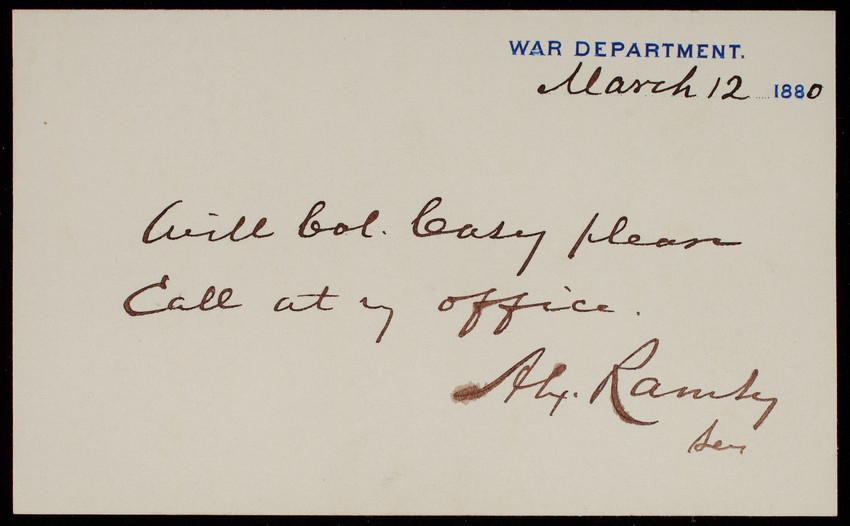 WAR DEPARTMENT.
March 12 1880
Will Col. Casey please
Call at my office.
Alex. Ramsey
Sec